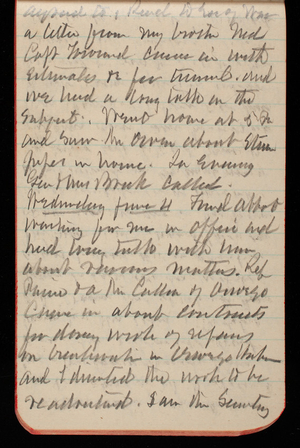 a letter from my brother Ned
Capt Townsend came in with
Estimates &c for tunnel. and
we had a long talk on the
Subject. Went home at 5
and saw Mr Owen about Steam
pipes in home. In Evening
Gen & Mrs Brock Called.
Wednesday June 4 Fred Abbot
working for me in office and
had long talk with him
about various matters. Rep
Payne & a Mr Cullen of Oswego
Came in about contracts
for doing work of repairs
on breakwater in Oswego
and I directed the work to be
readvertised. I saw the Secretary